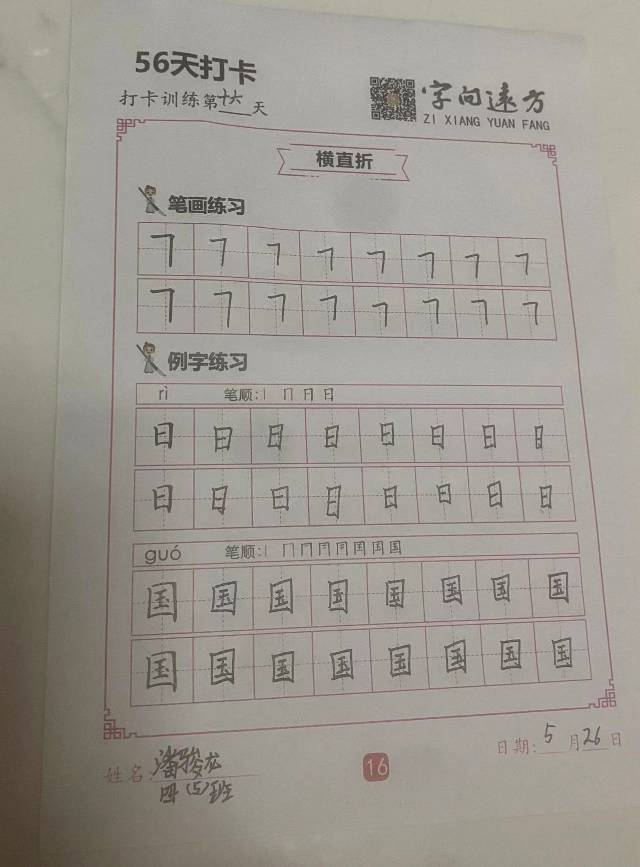 56天打卡
打卡训练第十六天
字向遠方
ZI XIANG YUAN FANG
横直折
笔画练习
㇕ ㇕ ㇕ ㇕ ㇕ ㇕ ㇕ ㇕
㇕ ㇕ ㇕ ㇕ ㇕ ㇕ ㇕ ㇕
例字练习
rì 笔顺:丨 冂 日 日
日 日 日 日 日 日 日 日
日 日 日 日 日 日 日 日
guó 笔顺:丨 冂 冂 冃 囯 国 国 国
国 国 国 国 国 国 国 国
国 国 国 国 国 国 国 国
姓名:潘骏龙
四(5)班
16
日期:5月26日